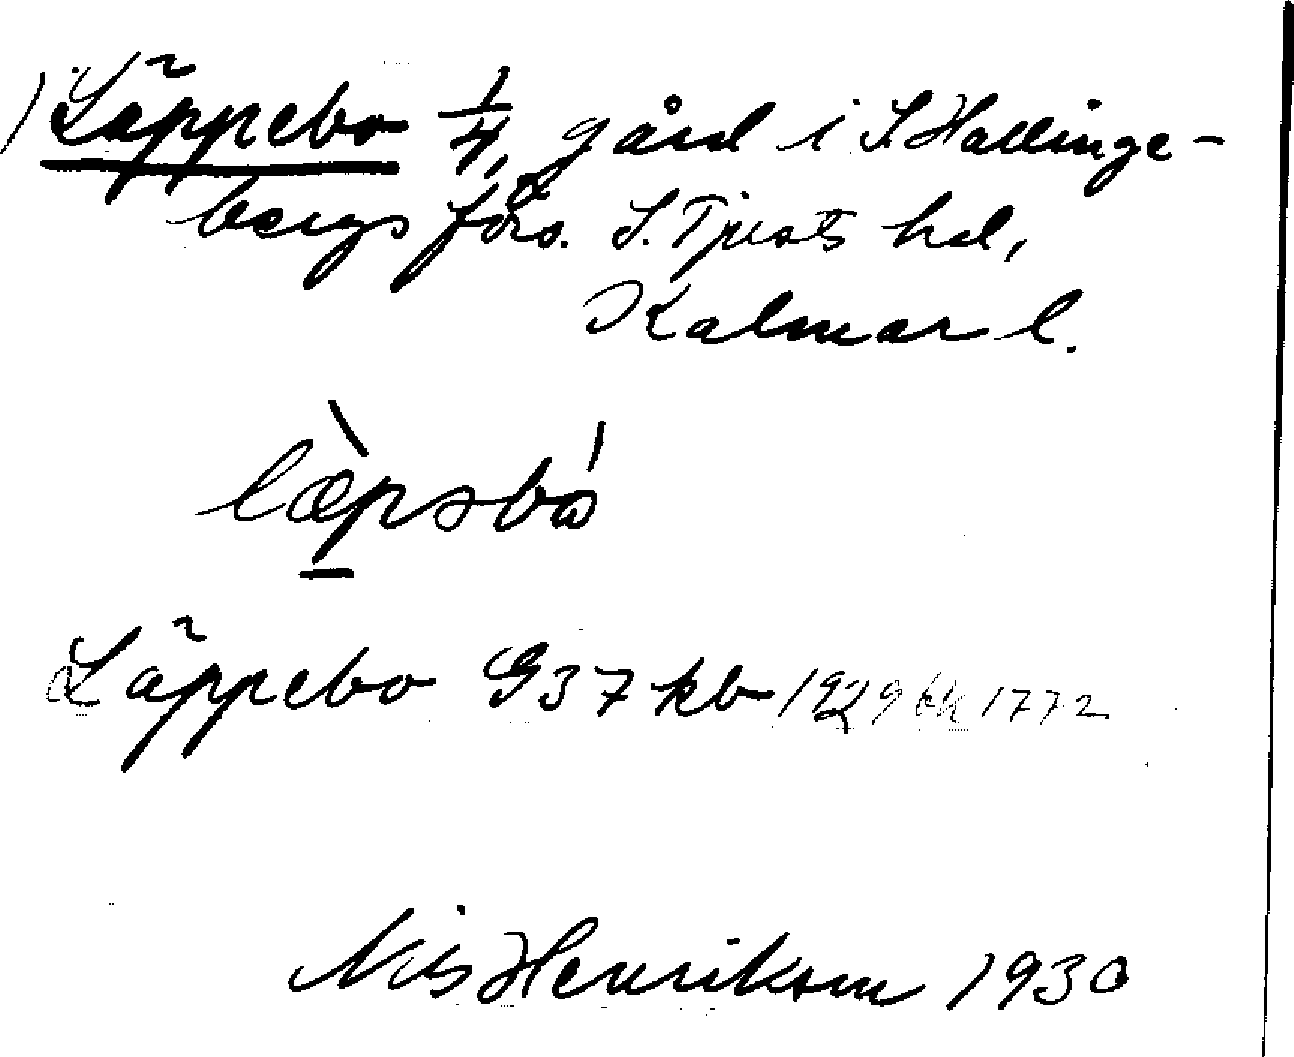 1) Läppebo 1/4, gård i S. Hallinge-
bergs förs. S. Tjusts hd,
Kalmar l.
Läppebo G 37 kb 1929 bk 1772
Nils Henrikson 1930